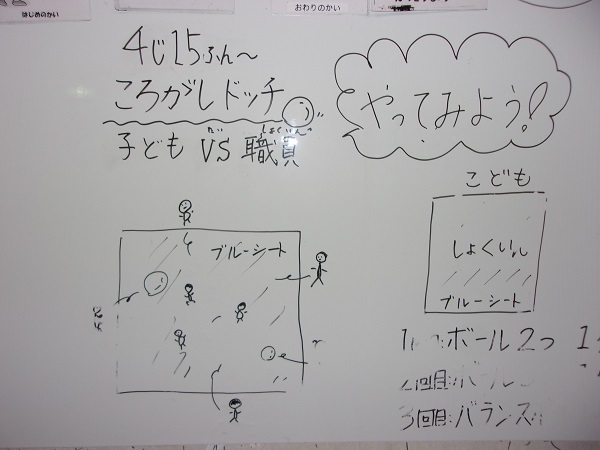 はじめのかい
おわりのかい
4じ15ふん～
ころがしドッチ
子ども VS 職員
しょくいん
やってみよう!
こども
ブルーシート
しょくいん
ブルーシート
ボール2つ
3回目:バランス